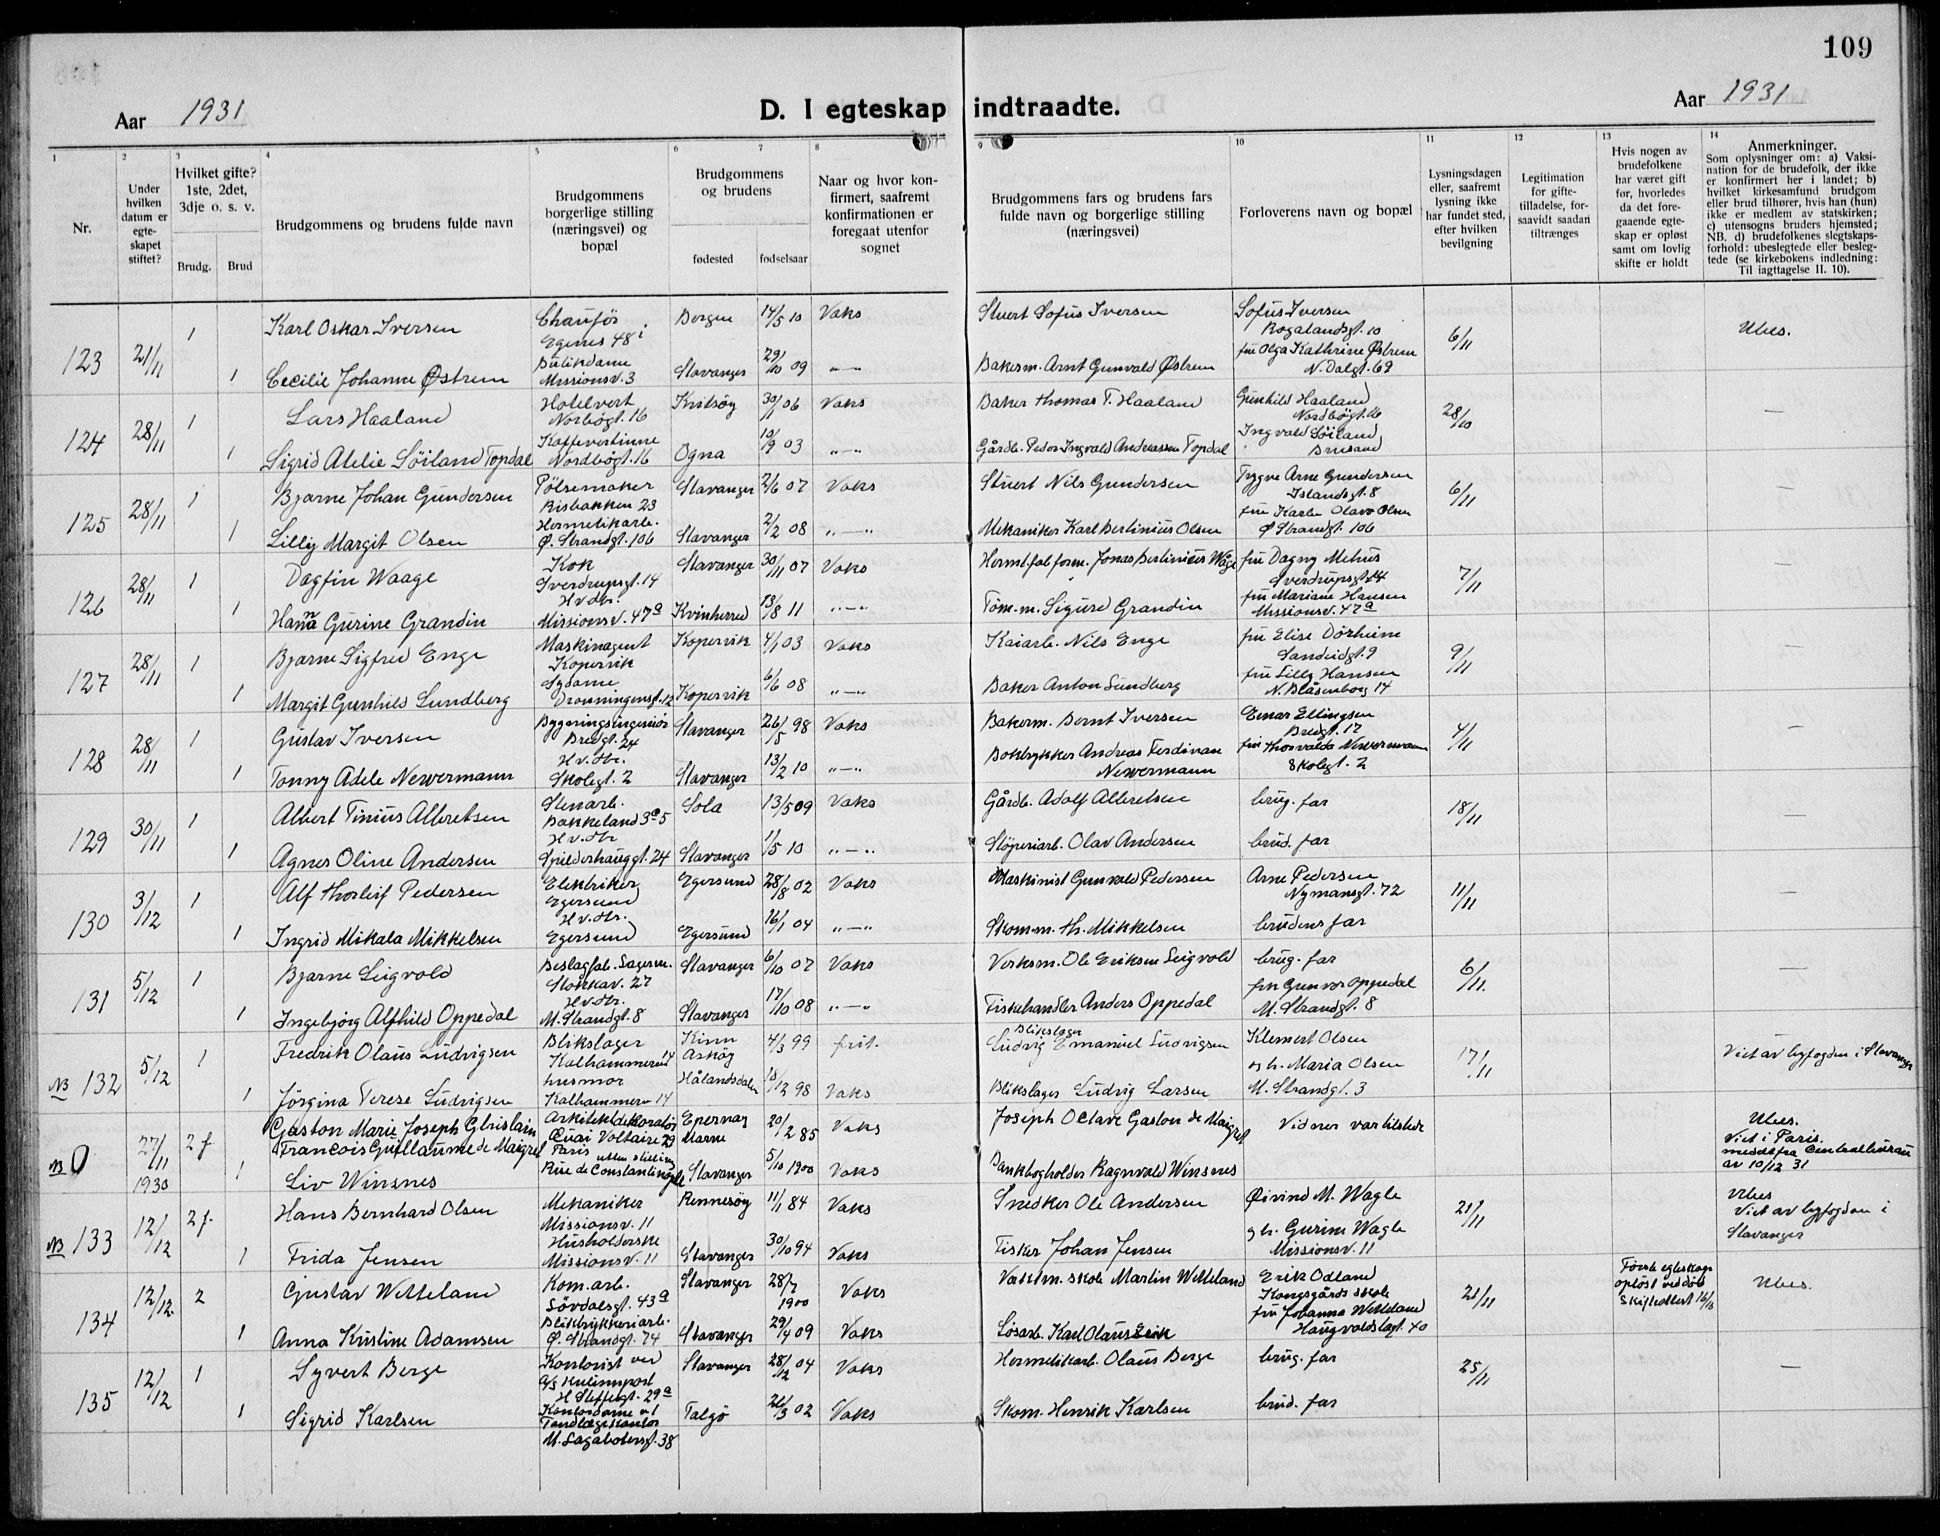 109
Aar 1931
D. I egteskap indtraadte.
Aar 1931
1
2
3
4
5
6
7
8
9
10
11
12
13
14
Nr.
Under hvilken datum er egteskapet stiftet?
Hvilket gifte? 1ste, 2det, 3dje o. s. v.
Brudg.
Brud
Brudgommens og brudens fulde navn
Brudgommens borgerlige stilling (næringsvei) og bopæl
Brudgommens og brudens
fødested
fødselsaar
Naar og hvor konfirmert, saafremt konfirmationen er foregaat utenfor sognet
Brudgommens fars og brudens fars fulde navn og borgerlige stilling (næringsvei)
Forloverens navn og bopæl
Lysningsdagen eller, saafremt lysning ikke har fundet sted, efter hvilken bevilgning
Legitimation for giftetilladelse, forsaavidt saadan tiltrænges
Hvis nogen av brudefolkene har været gift før, hvorledes da det foregaaende egteskap er opløst samt om lovlig skifte er holdt
Anmerkninger.
Som oplysninger om: a) Vaksination for de brudefolk, der ikke er konfirmert her i landet; b) hvilket kirkesamfund brudgom eller brud tilhører, hvis han (hun) ikke er medlem av statskirken; c) utensogns bruders hjemsted; NB. d) brudefolkenes slegtskapsforhold: ubeslegtede eller beslegtede (se kirkebokens indledning: Til iagttagelse II. 10).
123 21/11 1 Karl Oskar Iversen Chauför Egenes 48 i Bergen 14/5 10 Vaks Stuert Sofus Iversen Sofus Iversen Rogalandsgt. 10 6/11 Ubes.
1 Cecilie Johanne Østrem Butikdame Missionsv. 3 Stavanger 29/10 09 „—„ Bakerm. Arnt Gunvald Østrem fru Olga Kathrine Østrem N. Dalgt. 69
124 28/11 1 Lars Haaland Hotelvert Norbøgt. 16 Kvitsøy 30/11 06 Vaks Baker Thomas T. Haaland Gunhild Haaland Nordbøgt. 16 28/10 —
1 Sigrid Atelie Söiland Topdal Kaffevertinne Nordbøgt. 16 Ogna 10/9 03 „—„ Gårdb. Peder Ingvald Andreassen Topdal Ingvald Söiland Brusand
125 28/11 1 Bjarne Johan Gundersen Pölsemaker Risbakken 23 Stavanger 2/6 07 Vaks Stuert Nils Gundersen Trygve Arne Gundersen Islandsgt. 8 6/11 —
1 Lilly Margit Olsen Hermetikarb. Ø. Strandgt. 106 Stavanger 2/2 08 „—„ Mekaniker Karl Bertinius Olsen fru Karla Olava Olsen Ø Strandgt. 106
126 28/11 1 Dagfin Waage Kok Sverdrupsgt. 14 Stavanger 30/11 07 Vaks Hermt.fab.form. Jonas Bertinius Wåge fru Dagny Mehus Sverdrupsgt. 14 7/11 —
1 Hanna Gurine Grandin H v. dtr. Missionsv. 47a Kvinherred 13/8 11 „—„ Töm.m. Sigurd Grandin fru Mariane Hansen Missionsv. 47a
127 28/11 1 Bjarne Sigfred Enge Maskinagent Kopervik Kopervik 4/1 03 Vaks Kaiarb. Nils Enge fru Elise Dörheim Sandeidgt. 9 9/11 —
1 Margit Gunhild Lundberg Sydame Dronningensgt. 12 Kopervik 6/6 08 „—„ Baker Anton Lundberg fru Lilly Hansen N. Blåsenborg 14
128 28/11 1 Gustav Iversen Bygningsingeniör Bredgt. 24 Stavanger 26/5 98 Vaks Bakerm. Bernt Iversen Einar Ellingsen Bredgt. 17 4/11 —
1 Tonny Adele Newermann H v. dtr. Skolegt. 2 Stavanger 13/2 10 „—„ Boktrykker Andreas Ferdinan Newermann fru Thorvalda Newermann Skolegt. 2
129 30/11 1 Albert Tinius Albretsen Stenarb. Bakkeland 3a 5 Sola 13/5 09 Vaks Gårdb. Adolf Albretsen brug. far 18/11 —
1 Agnes Oline Andersen H v. dtr Spilderhauggt. 24 Stavanger 1/5 10 „—„ Stöperiarb. Olav Andersen brud. far
130 3/12 1 Alf Thorleif Pedersen Elektriker Egersund Egersund 28/8 02 Vaks Maskinist Gunvald Pedersen Arne Pedersen Nymansgt. 72 11/11 —
1 Ingrid Mikala Mikkelsen H v. dtr. Egersund Egersund 16/1 04 „—„ Skom.m. Th. Mikkelsen brudens far
131 5/12 1 Bjarne Seigvold Beslagfab. Lagerm. Stokkav. 27 Stavanger 6/10 07 Vaks Verksm. Ole Eriksen Seigvold brug. far 6/11 —
1 Ingebjörg Alfhild Oppedal H v. dtr. M. Strandgt. 8 Stavanger 17/10 08 „—„ Fiskehandler Anders Oppedal frk Gunvor Oppedal M. Strandgt. 8
NB 132 5/12 1 Fredrik Olaus Ludvigsen Blikslager Kalhammeren 14 Kinn Askøy 4/3 99 frit. Blikslager Ludvig Emanuel Ludvigsen Klement Olsen 17/11 Viet av byfogden i Stavanger
1 Jörgina Terese Ludvigsen husmor Kalhammern 14 Hålandsdalen 18/12 98 Vaks Blikslager Ludvig Larsen og h. Maria Olsen M. Strandgt. 3
NB 0 27/11 1930 2 f. Gaston Marie Joseph Ghislain Francois Guillaume de Maigret Arkitekt dekoratör Quai Voltaire 29 Paris Epernay Marne 20/2 85 Vaks Joseph Octave Gaston de Maigret Vidner var tilstede Ubes. Viet i Paris. meddt fra Centralbureau av 10/12 31
1 Liv Winsnes uten stilling Rue de Constantinople Stavanger 5/10 1900 Vaks Bankbogholder Ragnvald Winsnes
NB 133 12/12 2 f. Hans Bernhard Olsen Mekaniker Missionsv. 11 Rennesöy 11/1 84 Vaks Snedker Ole Andersen Øivind M. Wagle 21/11 Ubes Viet av byfogden i Stavanger
1 Frida Jensen Husholderske Missionsv. 11 Stavanger 30/10 94 Vaks Fisker Johan Jensen og h. Gurine Wagle Missionsv. 11
134 12/12 2 Gustav Wetteland Kom.arb. Lövdalsgt. 43a Stavanger 28/7 1900 Vaks Vaktm. skole Martin Wetteland Erik Odland Kongsgårds skole 21/11 Förste egteskap oplöst ved död Skifte Ubes.
1 Anna Kristine Adamsen Bliktrykkeriarb. Ø. Strandgt. 74 Stavanger 29/4 09 Vaks Lösarb. Karl Olaus fru Johanna Wetteland Haugvaldstadgt. 40
135 12/12 1 Syvert Berge Kontorist ved a/s Stavanger 28/12 04 Vaks Hermetikarb. Olaus Berge brug. far 25/11 —
1 Sigrid Karlsen Kontordame v/ Tandlægekontor M. Sagabotensgt. 38 Talgö 26/3 02 Vaks Skom. Henrik Karlsen brud. far